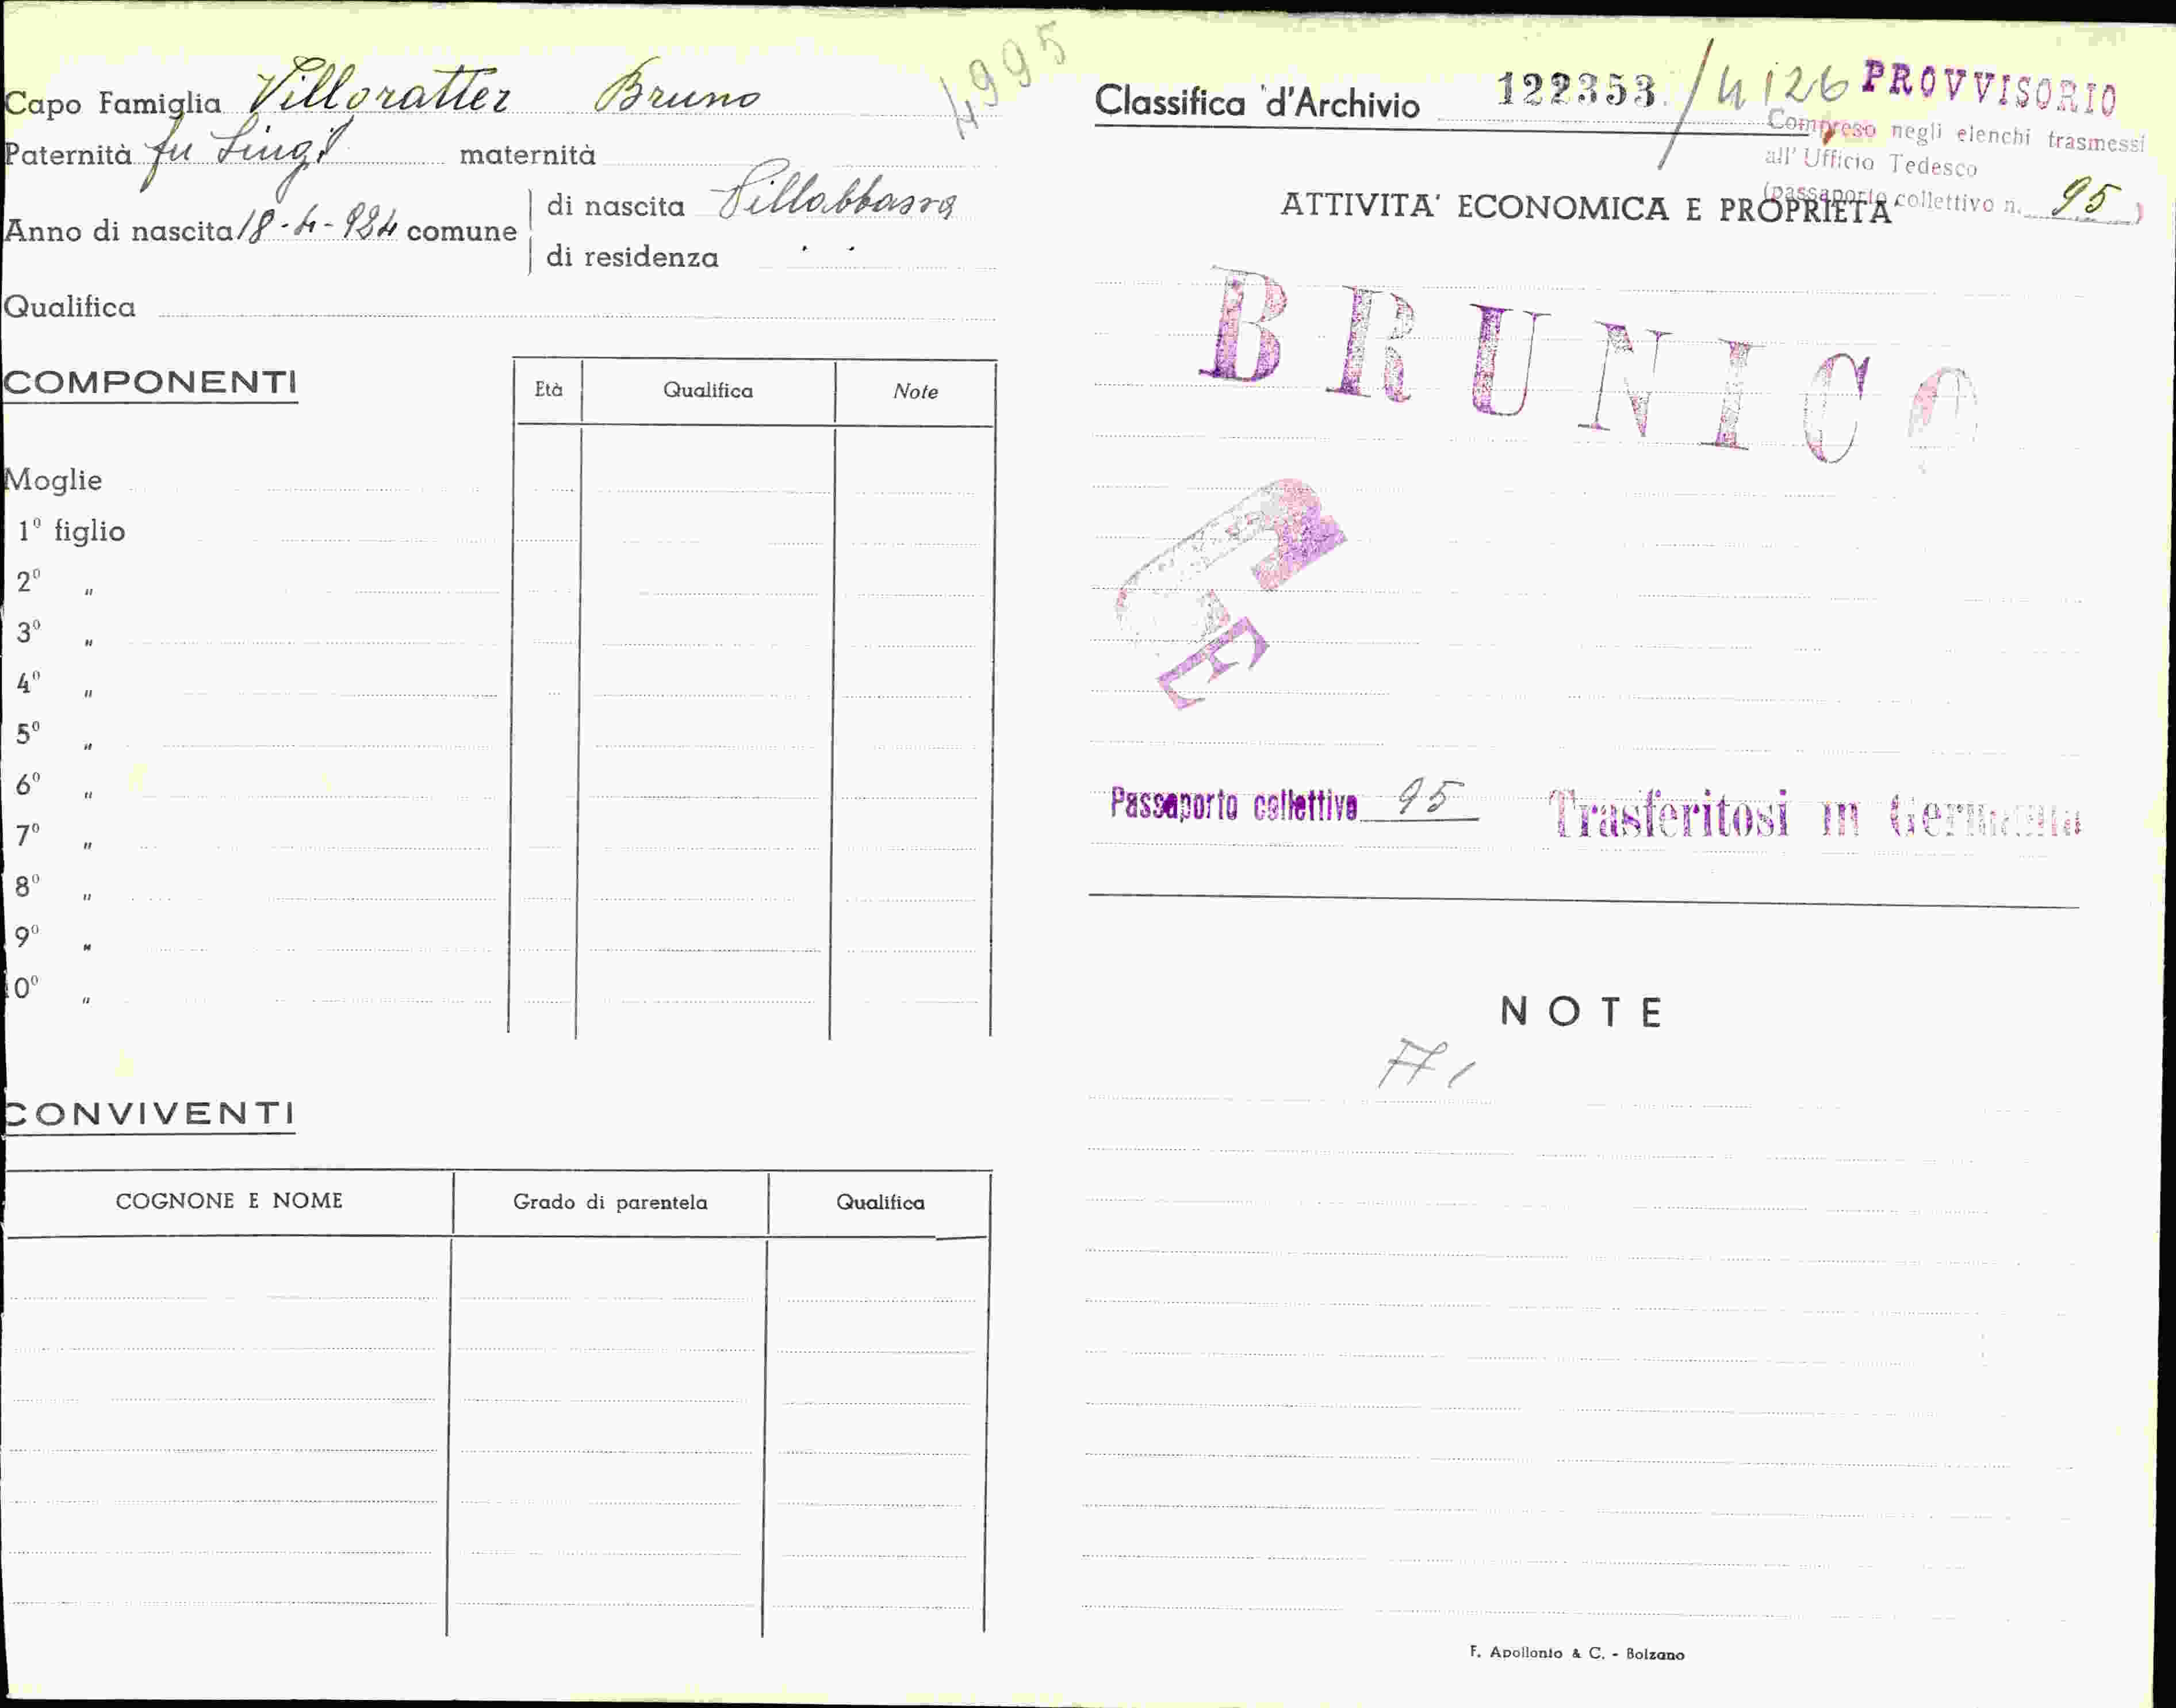 4995
Capo Famiglia Villgratter Bruno
Paternità fu Luigi maternità
Anno di nascita 18-4-924 comune
di nascita Villabbassa
di residenza " "
Qualifica
COMPONENTI
Età Qualifica Note
Moglie
1º figlio
2º "
3º "
4º "
5º "
6º "
7º "
8º "
9º "
10º "
CONVIVENTI
COGNONE E NOME Grado di parentela Qualifica
Classifica d'Archivio 122353 / 4126 PROVVISORIO
Compreso negli elenchi trasmessi
all' Ufficio Tedesco
(passaporto collettivo n. 95)
ATTIVITA' ECONOMICA E PROPRIETA'
BRUNICO
Passaporto collettivo 95 Trasferitosi in Germania
NOTE
F. Apollonio & C. - Bolzano